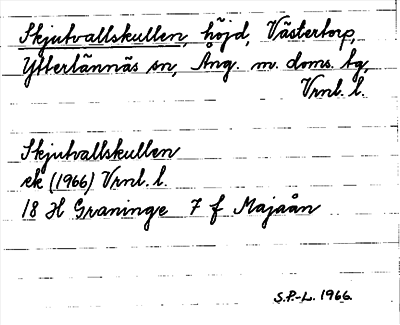 Skjutvallskullen, höjd, Västertorp,
Ytterlännäs sn, Ång. m. doms. tg,
Vrnl. l.
Skjutvallskullen
ek (1966) Vrnl. l.
18 H Graninge 7 f Majaån
S.P.-L. 1966.